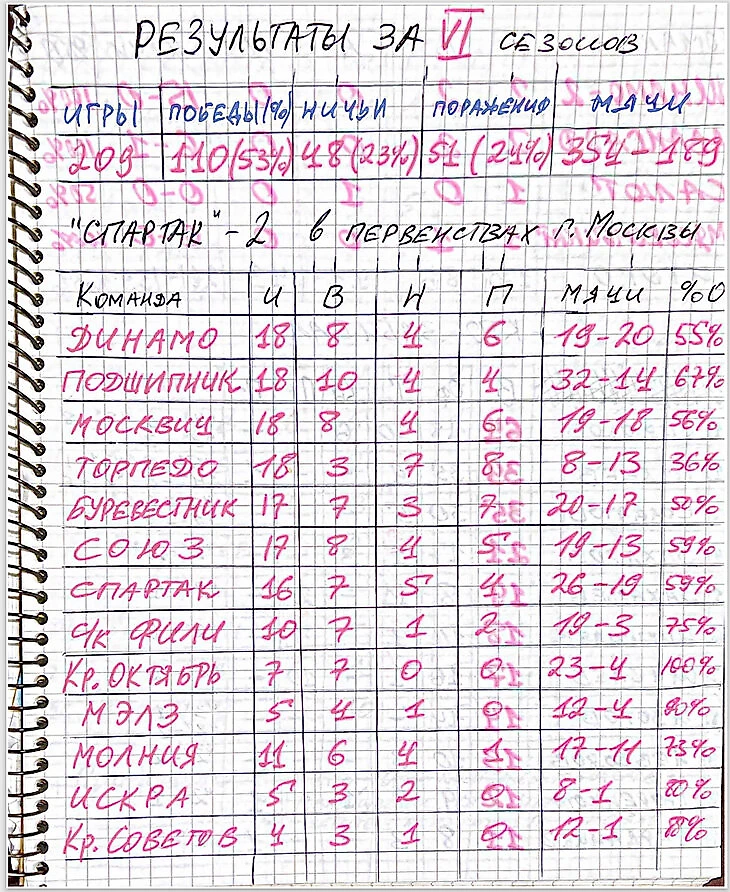 РЕЗУЛЬТАТЫ ЗА VI СЕЗОНОВ
ИГРЫ ПОБЕДЫ(%) НИЧЬИ ПОРАЖЕНИЯ МЯЧИ
209 110(53%) 48(23%) 51(24%) 354-189
"СПАРТАК"-2 В ПЕРВЕНСТВАХ Г. МОСКВЫ
КОМАНДА И В Н П МЯЧИ %О
ДИНАМО 18 8 4 6 19-20 55%
ПОДШИПНИК 18 10 4 4 32-14 67%
МОСКВИЧ 18 8 4 6 19-18 56%
ТОРПЕДО 18 3 7 8 8-13 36%
БУРЕВЕСТНИК 17 7 3 7 20-17 50%
СОЮЗ 17 8 4 5 19-13 59%
СПАРТАК 16 7 5 4 26-19 59%
С/К ФИЛИ 10 7 1 2 19-3 75%
КР. ОКТЯБРЬ 7 7 0 0 23-4 100%
МЭЛЗ 5 4 1 0 12-4 90%
МОЛНИЯ 11 6 4 1 17-11 73%
ИСКРА 5 3 2 0 8-1 80%
КР. СОВЕТОВ 4 3 1 0 12-1